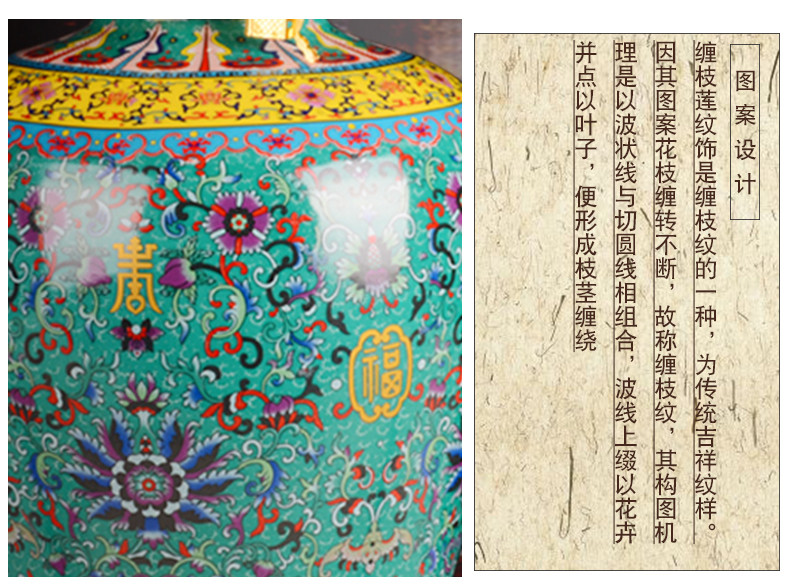 图案设计
缠枝莲纹饰是缠枝纹的一种，为传统吉祥纹样。
因其图案花枝缠转不断，故称缠枝纹，其构图机
理是以波状线与切圆线相组合，波线上缀以花卉
并点以叶子，便形成枝茎缠绕
福